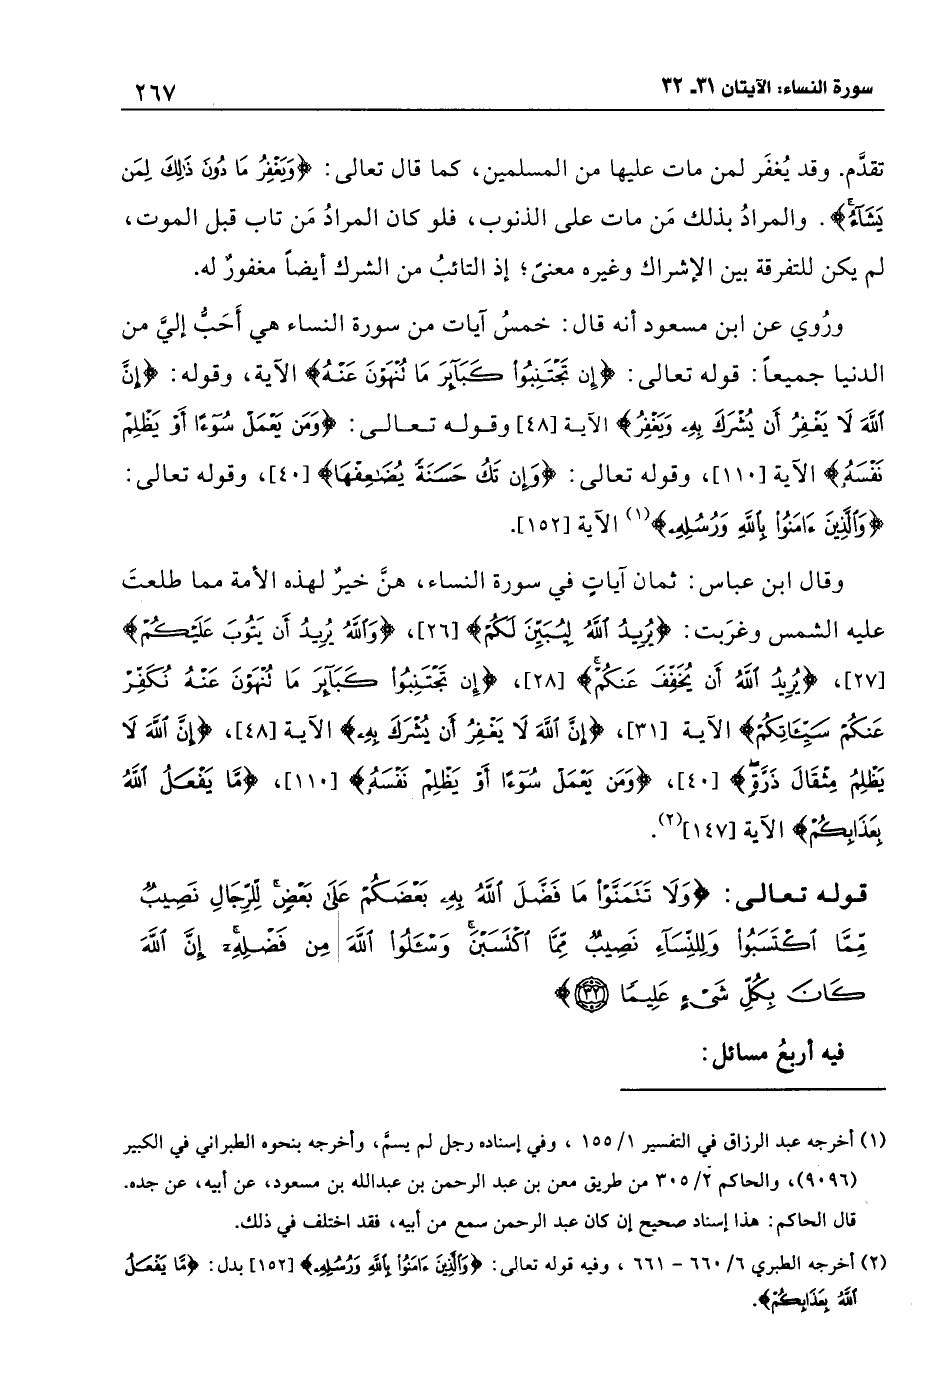 سورة النساء: الآيتان ٣١ـ ٣٢ ٢٦٧
تقدَّم. وقد يُغفَر لمن مات عليها من المسلمين، كما قال تعالى: ﴿وَيَغْفِرُ مَا دُونَ ذَٰلِكَ لِمَن
يَشَآءُ﴾. والمرادُ بذلك مَن مات على الذنوب، فلو كان المرادُ مَن تاب قبل الموت،
لم يكن للتفرقة بين الإشراك وغيره معنىً؛ إذ التائبُ من الشرك أيضاً مغفورٌ له.
ورُوي عن ابن مسعود أنه قال: خمسُ آيات من سورة النساء هي أَحَبُّ إليَّ من
الدنيا جميعاً: قوله تعالى: ﴿إِن تَجْتَنِبُوا۟ كَبَآئِرَ مَا نُنْهَوْنَ عَنْهُ﴾ الآية، وقوله: ﴿إِنَّ
ٱللَّهَ لَا يَغْفِرُ أَن يُشْرَكَ بِهِۦ وَيَغْفِرُ﴾ الآية [٤٨] وقوله تعالى: ﴿وَمَن يَعْمَلْ سُوٓءًا أَوْ يَظْلِمْ
نَفْسَهُۥ﴾ الآية [١١٠]، وقوله تعالى: ﴿وَإِن تَكُ حَسَنَةً يُضَٰعِفْهَا﴾ [٤٠]، وقوله تعالى:
﴿وَٱلَّذِينَ ءَامَنُوا۟ بِٱللَّهِ وَرُسُلِهِۦ﴾(١) الآية [١٥٢].
وقال ابن عباس: ثمان آياتٍ في سورة النساء، هنَّ خيرٌ لهذه الأمة مما طلعتَ
عليه الشمس وغرَبت: ﴿يُرِيدُ ٱللَّهُ لِيُبَيِّنَ لَكُمْ﴾ [٢٦]، ﴿وَٱللَّهُ يُرِيدُ أَن يَتُوبَ عَلَيْكُمْ﴾
[٢٧]، ﴿يُرِيدُ ٱللَّهُ أَن يُخَفِّفَ عَنكُمْ﴾ [٢٨]، ﴿إِن تَجْتَنِبُوا۟ كَبَآئِرَ مَا نُنْهَوْنَ عَنْهُ نُكَفِّرْ
عَنكُمْ سَيِّـَٔاتِكُمْ﴾ الآية [٣١]، ﴿إِنَّ ٱللَّهَ لَا يَغْفِرُ أَن يُشْرَكَ بِهِۦ﴾ الآية [٤٨]، ﴿إِنَّ ٱللَّهَ لَا
يَظْلِمُ مِثْقَالَ ذَرَّةٍ﴾ [٤٠]، ﴿وَمَن يَعْمَلْ سُوٓءًا أَوْ يَظْلِمْ نَفْسَهُۥ﴾ [١١٠]، ﴿مَّا يَفْعَلُ ٱللَّهُ
بِعَذَابِكُمْ﴾ الآية [١٤٧](٢).
قوله تعالى: ﴿وَلَا تَتَمَنَّوْا۟ مَا فَضَّلَ ٱللَّهُ بِهِۦ بَعْضَكُمْ عَلَىٰ بَعْضٍ لِّلرِّجَالِ نَصِيبٌ
مِّمَّا ٱكْتَسَبُوا۟ وَلِلنِّسَآءِ نَصِيبٌ مِّمَّا ٱكْتَسَبْنَ وَسْـَٔلُوا۟ ٱللَّهَ مِن فَضْلِهِۦٓ إِنَّ ٱللَّهَ
كَانَ بِكُلِّ شَىْءٍ عَلِيمًا ٣٢﴾
فيه أربعُ مسائل:
(١) أخرجه عبد الرزاق في التفسير ١/ ١٥٥ ، وفي إسناده رجل لم يسمَّ، وأخرجه بنحوه الطبراني في الكبير
(٩٠٩٦)، والحاكم ٢/ ٣٠٥ من طريق معن بن عبد الرحمن بن عبدالله بن مسعود، عن أبيه، عن جده.
قال الحاكم: هذا إسناد صحيح إن كان عبد الرحمن سمع من أبيه، فقد اختلف في ذلك.
(٢) أخرجه الطبري ٦/ ٦٦٠ - ٦٦١ ، وفيه قوله تعالى: ﴿وَٱلَّذِينَ ءَامَنُوا۟ بِٱللَّهِ وَرُسُلِهِۦ﴾ [١٥٢] بدل: ﴿مَّا يَفْعَلُ
ٱللَّهُ بِعَذَابِكُمْ﴾.